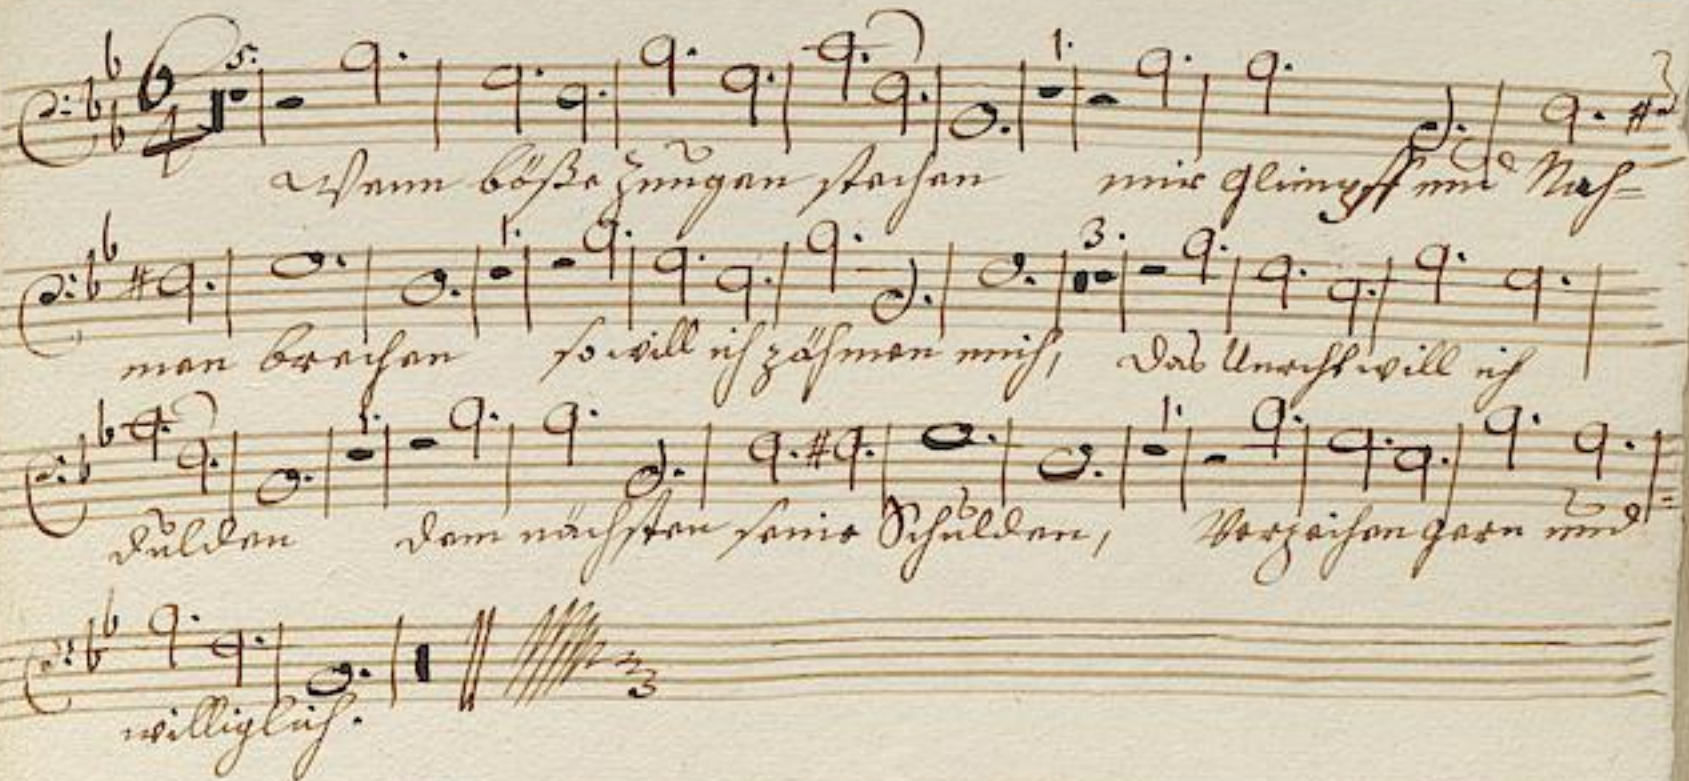 5. 1.
Wenn böße Zungen stechen mir Glimpff und Nah-
1. 3.
men brechen so will ich zähmen mich, das Unrecht will ich
1. 1.
dulden dem nächsten seine Schulden, Verzeihen gern und
williglich.